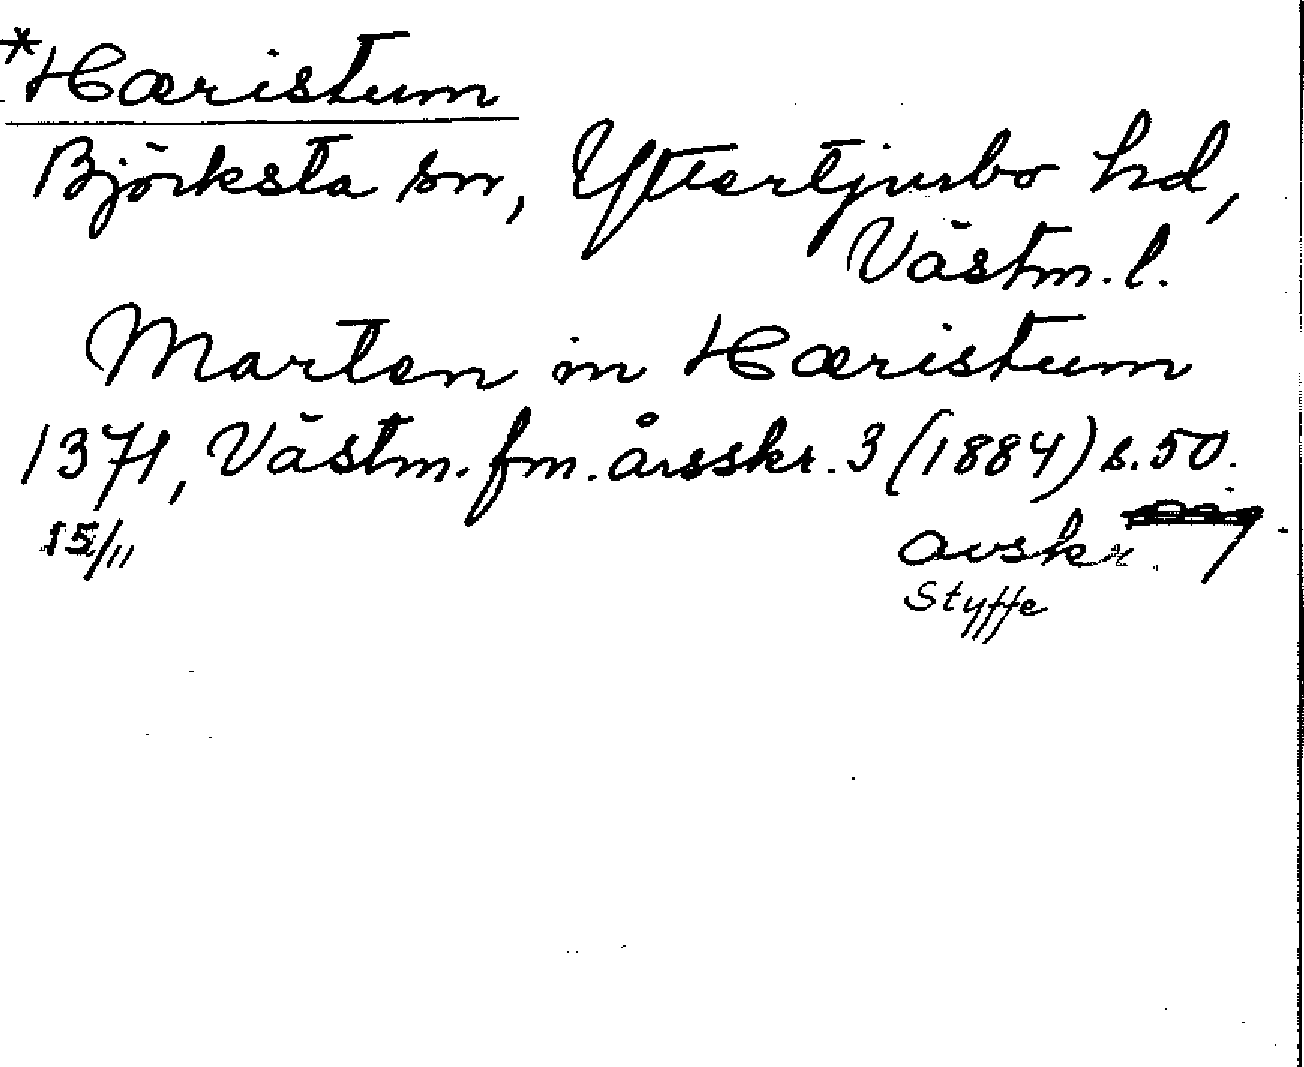 *Hæristum
Björksta sn, Yttertjurbo hd,
Västm. l.
Marten in Hæristum
1371, Västm. fm. årsskr. 3 (1884) s. 50.
15/11
avskr.
Styffe